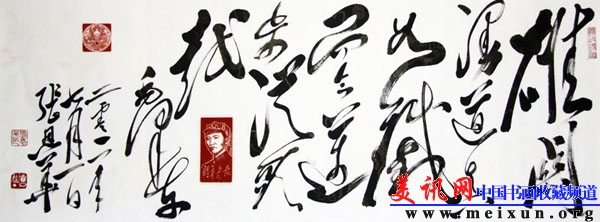 雄关
漫道真
如铁
而今迈
步从头
越
毛泽东
二零一一年
七月一日
美讯网
中国书画收藏频道
www.meixun.org